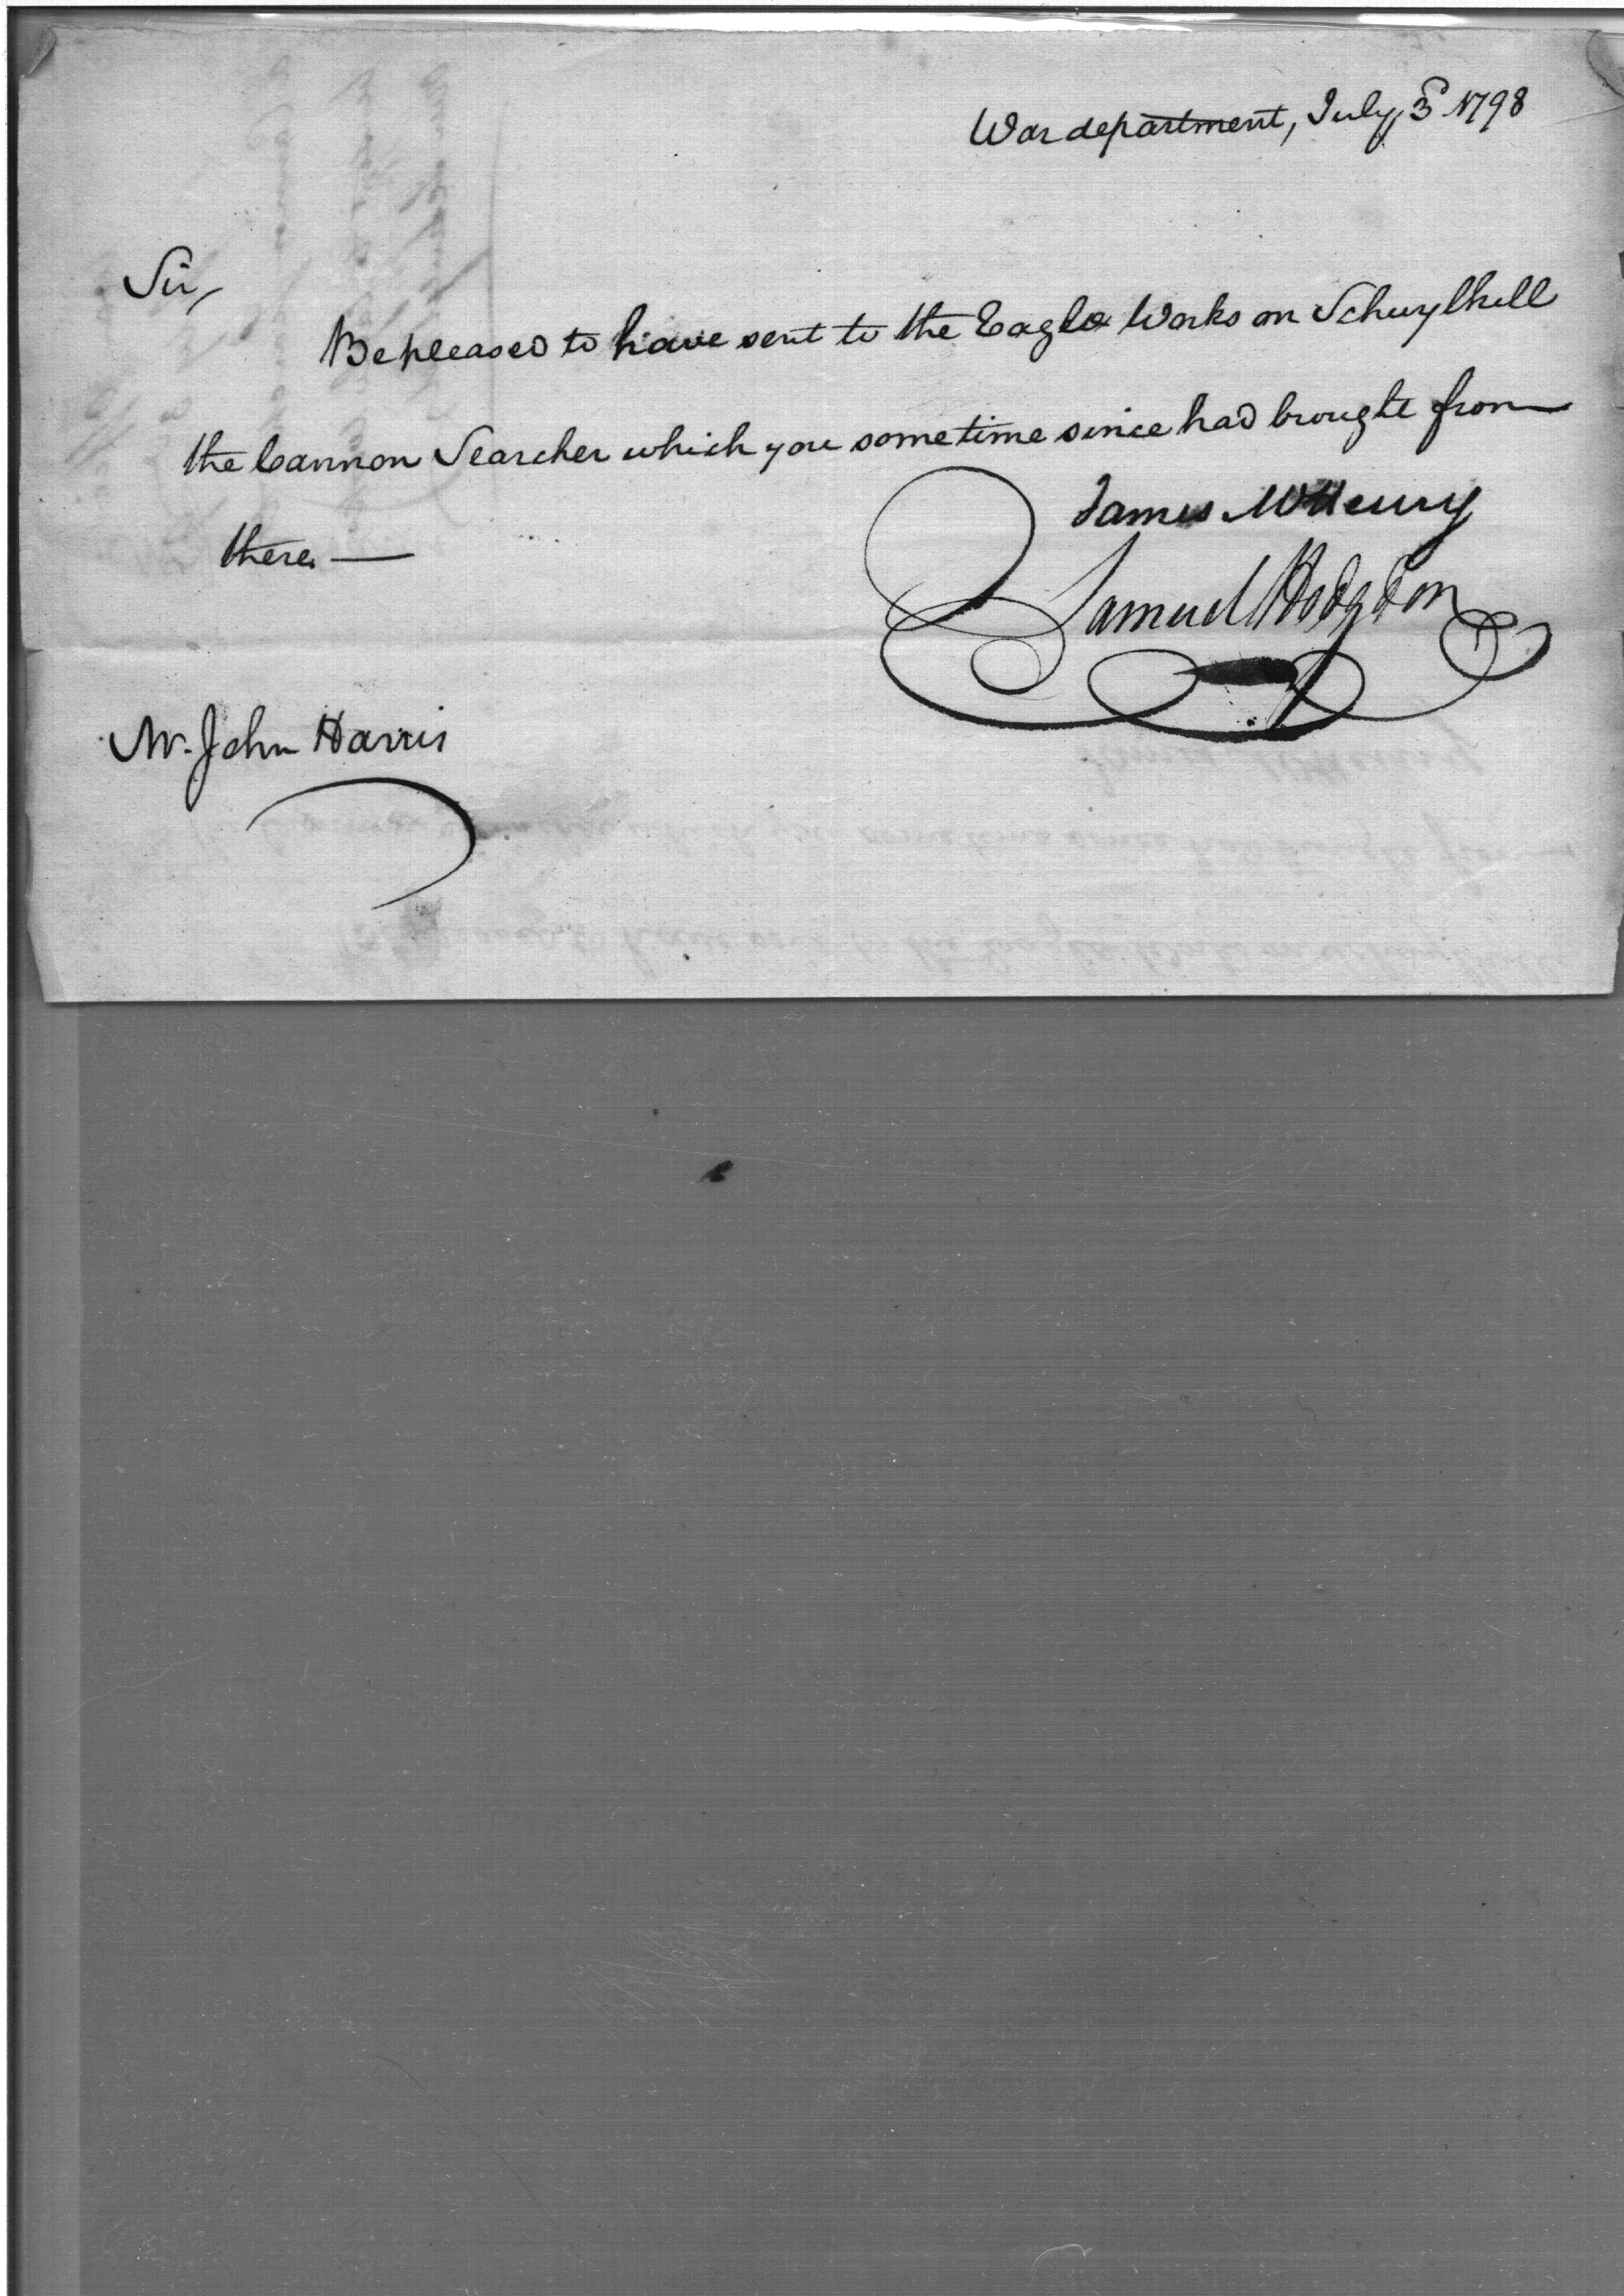 War department, July, 3d 1798
Sir,
Be pleased to have sent to the Eagle Works on Schuylkill
the Cannon Searcher which you sometime since had brought from
there. —
James McHenry
Samuel Hodgdon
Mr. John Harris